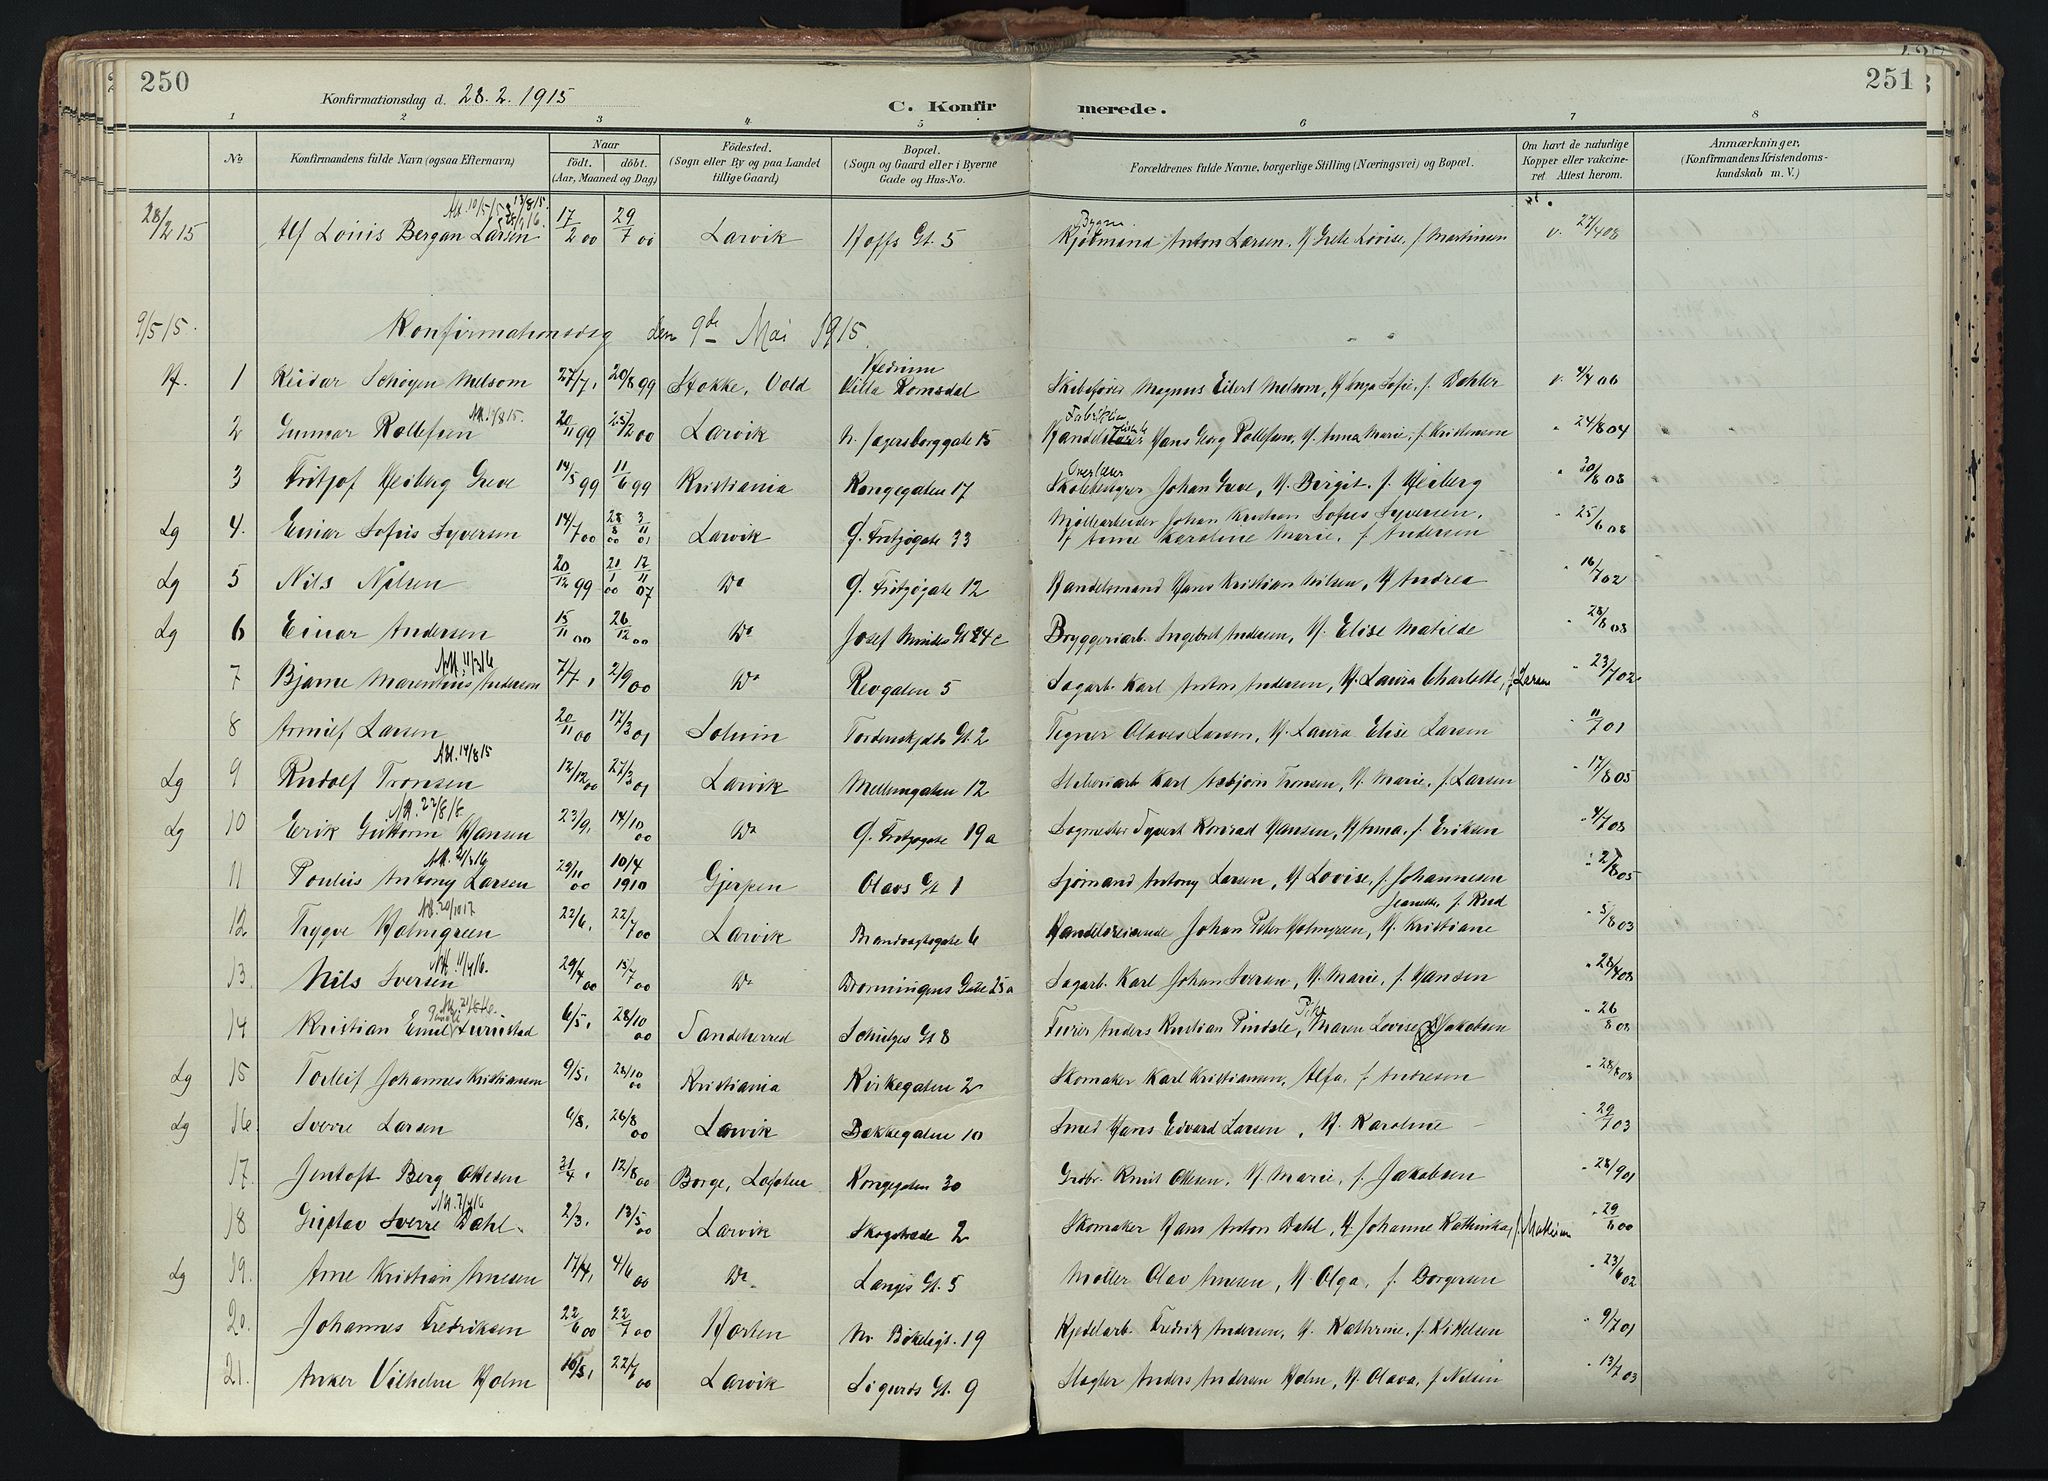 250
251
Konfirmationsdag d. 28. 2. 1915
C. Konfir merede.
1 2 3 4 5 6 7 8
No
Konfirmandens fulde Navn (ogsaa Efternavn)
Naar
født. døbt.
(Aar, Maaned og Dag)
Fødested.
(Sogn eller By og paa Landet
tillige Gaard.)
Bopæl.
(Sogn og Gaard eller i Byerne
Gade og Hus-No.
Forældrenes fulde Navne, borgerlige Stilling (Næringsvei) og Bopæl.
Om havt de naturlige
Kopper eller vakcine-
ret. Attest herom.
Anmærkninger,
(Konfirmandens Kristendoms-
kundskab m. V.)
28/2 15 Alf Louis Bergan Larsen 17/2 00 29/7 00 Larvik Hoffs Gt. 5 Kjøbmand Anton Larsen, H Grete Lovise, f. Martinsen v. 27/4 08
9/5 15. Konfirmationsdag den 9de Mai 1915.
H. 1 Reidar Schøyen Melsom 27/7, 20/8 99 Stokke, Vold Hedrum Villa Romsdal Skibsfører Magnus Eilert Melsom, H Inga Sofie, f. Dahler v. 4/4 06
2 Gunnar Rollefsen 20/11 99 25/2 00 Larvik N. Jegersborggate 15 Hans Georg Rollefsen, H. Anna Marie, f. Kristensen " 24/8 04
3 Fritjof Heiberg Greve 14/5 99 11/6 99 Kristiania Kongegaten 17 Overlærer Johan Greve, H. Birgit f. Heiberg " 30/8 08
Lg 4. Einar Sofus Syversen 14/7 00 28/8 00 3/11 01 Larvik G. Fritzøgate 33 Møllearbeider Johan Kristian Sofus Syversen, H Anne Karoline Marie, f Andersen " 25/6 08
Lg 5 Nils Nilsen 20/12 99 21/1 00 12/11 07 Do G. Fritzøgate 12 Handelsmand Hans Kristian Nilsen, H Andrea " 16/7 02
Lg 6 Einar Andersen 15/11 00 26/12 00 Do Josef Mindes Gt 24c Bryggeriarb. Ingebret Andersen, H. Elise Matilde " 28/8 08
7 Bjarne Marentius Andersen 7/7, 2/9 00 Do Revgaten 5 Sagarb. Karl Anton Andersen, H. Laura Charlotte, f. Larsen " 23/7 02
8 Arnulf Larsen 20/11 00 17/3 01 Solum Tordenskjolds Gt. 2 Tegner Olaves Larsen, H. Laura Elise Larsen " 11/7 01
Lg 9 Rudolf Tronsen 12/12 00 27/3 01 Larvik Mellemgaten 12 Karl Asbjørn Tronsen, H. Marie, f. Larsen " 17/8 05
Lg 10 Erik Guttorm Hansen 23/9, 14/10 00 Do G. Fritzøgate 19a Sagmester Syvert Konrad Hansen, H Anna, f. Eriksen " 4/7 08
11 Poulus Antony Larsen 29/11 00 10/4 1910 Gjerpen Olavs Gt 1 Sjømand Antony Larsen, H Lovise, f. Johannesen " 2/8 05
12 Trygve Holmgreen 22/6, 22/7 00 Larvik Brandvagtsgate 6 Handelsreisende Johan Peter Holmgreen, H. Kristiane Jeanette, f. Rud " 5/8 03
13. Nils Sversen 29/4 00 15/7 00 Do Dronningens Gate 25a Sagarb. Karl Johan Sversen, H. Marie, f. Hansen " 28/4 08
14 Kristian Emil 6/5, 28/10 00 Sandeherred Schulzes Gt 8 Anders Kristian Pindsle, Pike Maren Lovise Jakobsen " 26/8 08
Lg 15 Torleif Johannes Kristiansen 9/5, 28/10 00 Kristiania Kirkegaten 2 Skomaker Karl Kristiansen, Alfa, f. Andresen " 28/8 08
Lg 16. Sverre Larsen 6/8, 26/8 00 Larvik Bøkkegaten 10 Smed Hans Edvard Larsen, H. Karoline " 29/7 03
17. Jentoft Berg Ottesen 21/4, 12/8 00 Borge, Lofoten Kongegaten 30 Grosbr. Knut Ottesen, H. Marie, f. Jakobsen " 28/9 01
18 Gustav Sverre Dahl 2/3, 13/5 00 Larvik Skogstræde 2 Skomaker Hans Anton Dahl, H. Johanne Kathinka, " 29/6 00
Lg 19. Arne Kristian Arnesen 17/4, 4/6 00 Do Langes Gt. 5 Møller Olav Arnesen, H Olga, f. Borgersen " 23/6 02
20. Johannes Fredriksen 22/6 00 22/7 00 Horten Nr Bøkeligt. 19 Kjedelarb. Fredrik Andersen, H. Kathrine, f. Kittelsen " 9/7 01
21. Anker Vilhelm Holm 16/3, 22/7 00 Larvik Sigurds Gt. 9 Slagter Anders Andersen Holm, H. Olava, f. Nilsen " 13/7 03